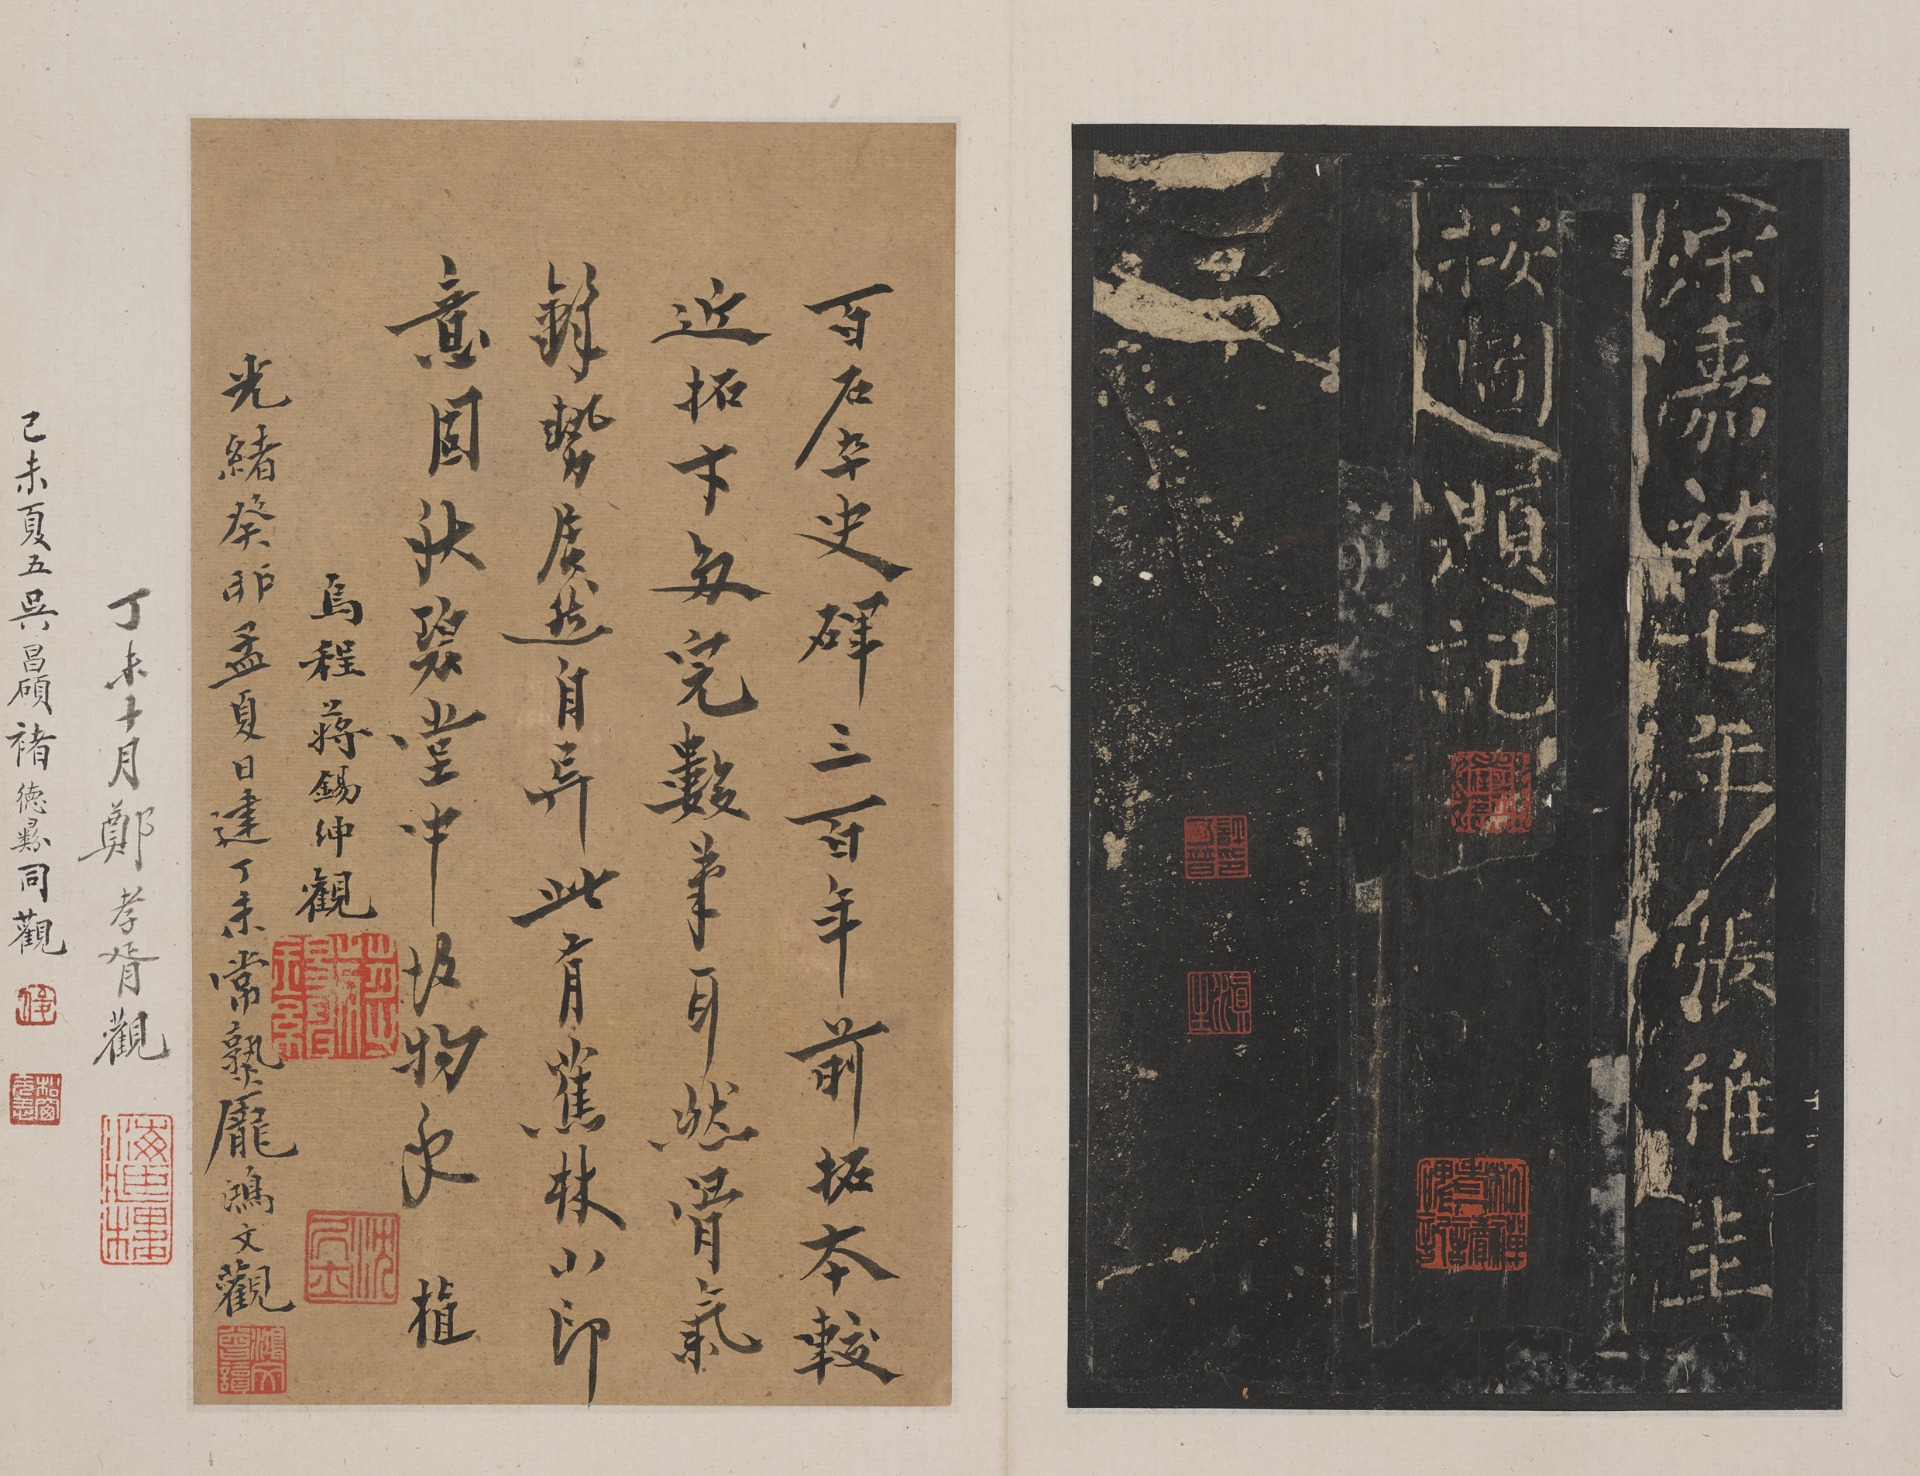 宋嘉祐七年張稚圭
按圖題記
百石卒史碑三百年前拓本較
近拓才多完數筆耳然骨氣
鋒勢厐然自異此有蕉林小印
意固秋碧堂中故物永 植
烏程蔣錫紳觀
光緒癸卯孟夏日建丁未常熟龐鴻文觀
丁未十月鄭孝胥觀
己未夏五吳昌碩褚德彝同觀